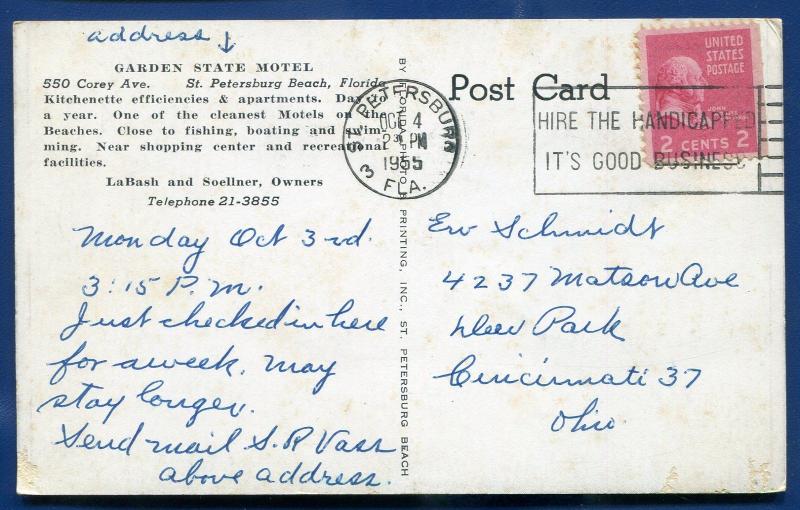 address ↓
GARDEN STATE MOTEL
550 Corey Ave. St. Petersburg Beach, Florida
Kitchenette efficiencies & apartments. Day to
a year. One of the cleanest Motels on the
Beaches. Close to fishing, boating and swim-
ming. Near shopping center and recreational
facilities.
LaBash and Soellner, Owners
Telephone 21-3855
Monday Oct 3rd.
3:15 P.M.
Just checked in here
for a week. May
stay longer.
Send mail S.R Vass
above address.
BY FLORIDA PHOTO PRINTING, INC., ST. PETERSBURG BEACH
Post Card
ST. PETERSBURG
OCT 4
2 PM
1955
3 FLA.
HIRE THE HANDICAPPED
IT'S GOOD BUSINESS
UNITED
STATES
POSTAGE
JOHN
2 CENTS 2
Erv Schmidt
4237 Matson Ave
Deer Park
Cincinnati 37
Ohio